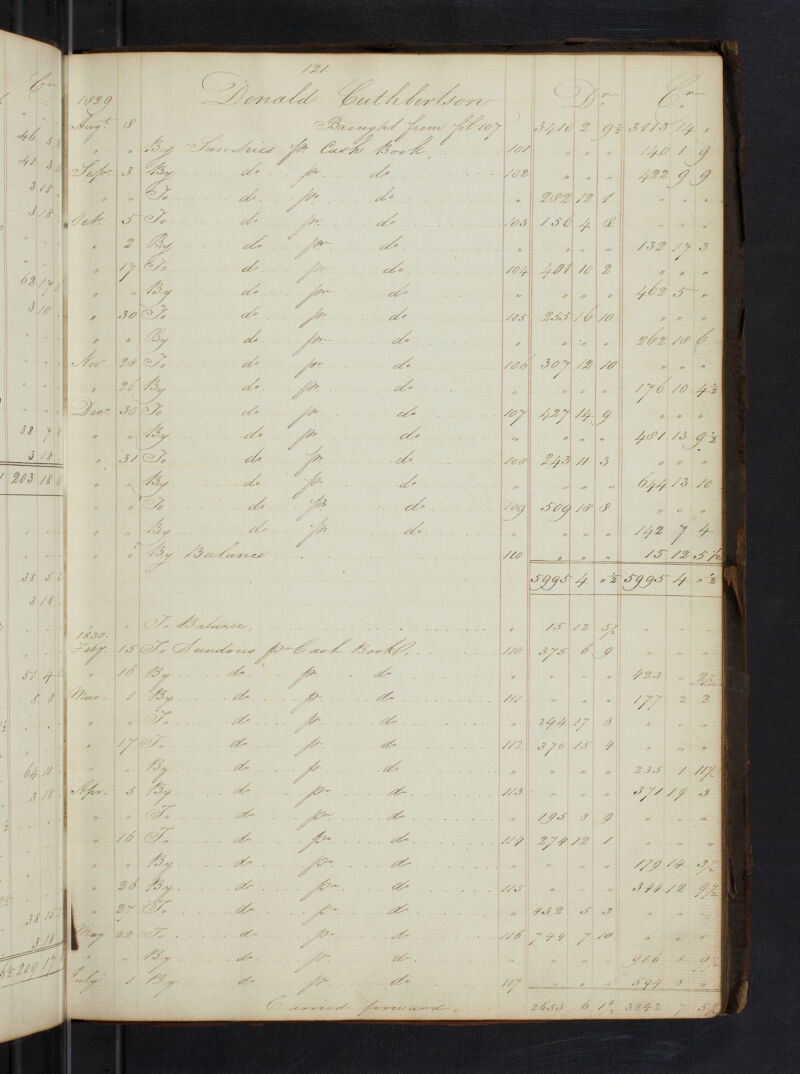 121.
1829 Donald Cuthbertson Dr. Cr.
Augt. 8 Brought from fol 107 3410 2 9½ 3113 14 "
" " By Sundries pr Cash Book. 101 " " " 140 1 9
Sepr. 3 By do pr do 102 " " " 422 9 9
" " To do pr do " 282 12 1 " " "
Oct. 5 To do pr do 103 156 4 8 " " "
" 2 By do pr do " " " " 132 17 3
" 17 To do pr do 104 401 10 2 " " "
" " By do pr do " " " " 462 5 "
" 30 To do pr do 105 255 16 10 " " "
" " By do pr do " " " " 262 18 6
Nov 28 To do pr do 106 307 12 10 " " "
" 26 By do pr do " " " " 176 10 4½
Decr. 30 To do pr do 107 427 14 9 " " "
" " By do pr do " " " " 481 13 9½
" 31 To do pr do 108 243 11 3 " " "
" " By do pr do " " " " 644 13 10
" " To do pr do 109 509 18 8 " " "
" " By do pr do " " " " 142 7 4
" " By Balance 110 " " " 15 12 5½
5995 4 "½ 5995 4 "½
" " To Balance, " 15 12 5½ " " "
1830.
Feby. 15 To Sundries pr Cash Book, 110 375 6 9 " " "
" 16 By do pr do " " " " 423 " 2½
Mar. 1 By do pr do 111 " " " 177 2 2
" " To do pr do " 244 17 8 " " "
" 17 To do pr do 112 370 15 4 " " "
" " By do pr do " " " " 235 1 11½
Apr. 5 By do pr do 113 " " " 371 19 3
" " To do pr do " 195 8 9 " " "
" 16 To do pr do 114 274 12 1 " " "
" " By do pr do " " " " 179 14 3½
" 26 By do pr do 115 " " " 344 12 9½
" 27 To do pr do " 432 5 3 " " "
May 22 To do pr do 116 744 7 10 " " "
" " By do pr do " " " " 916
July 1 By do pr do 117 " " " 594 8 "
Carried forward, 2653 6 1½ 3242 7 5½